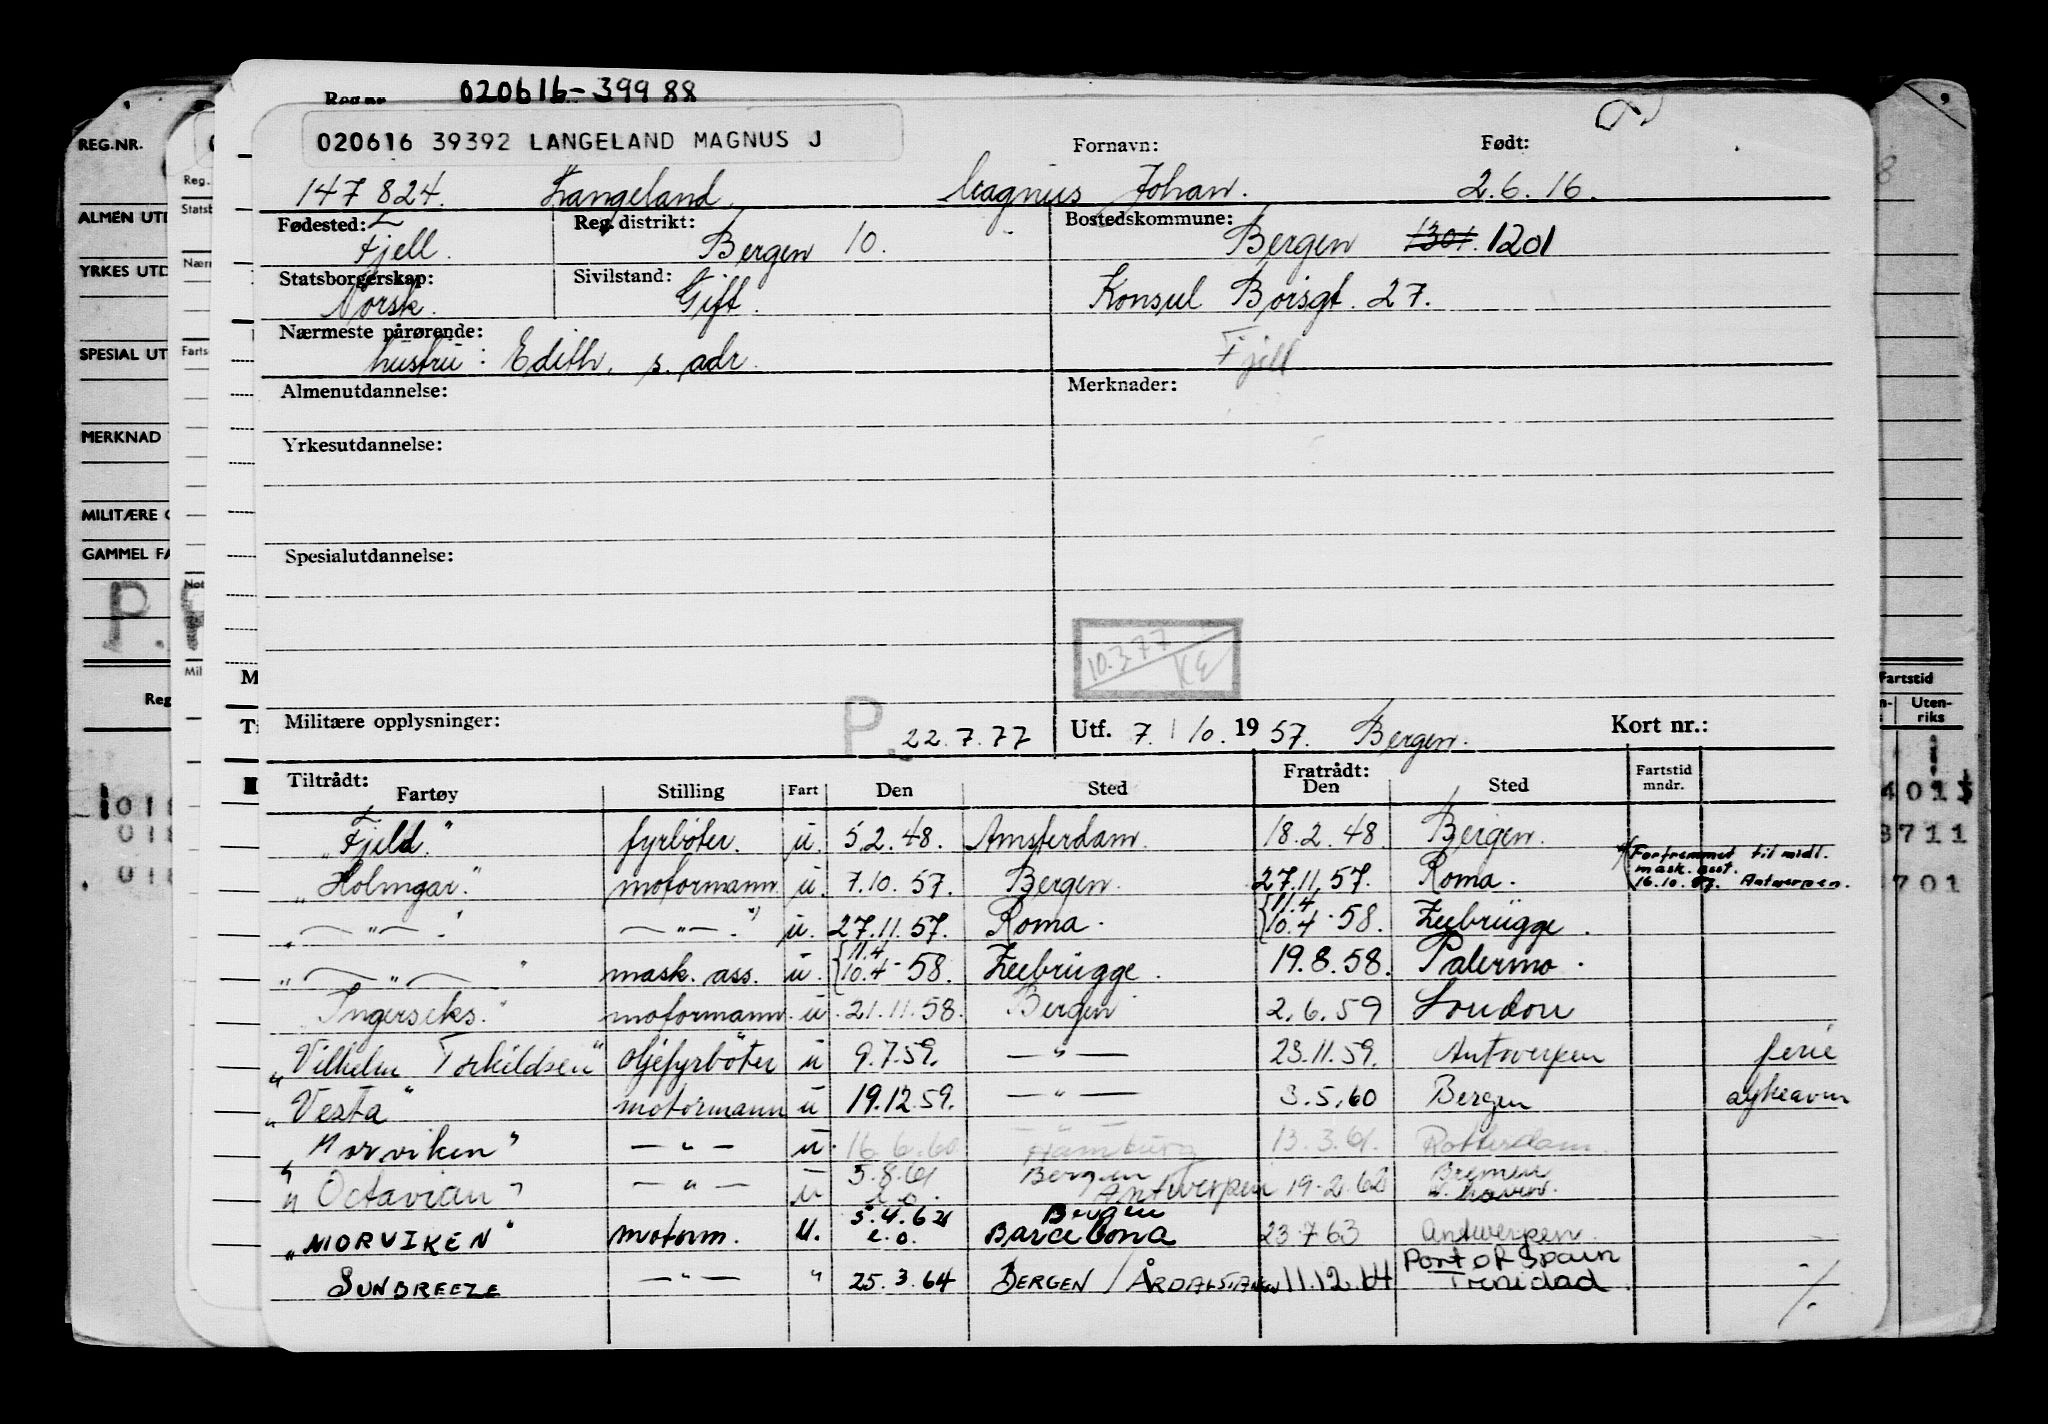 Reg nr. 020616-39988
020616 39392 LANGELAND MAGNUS J
Fornavn: Født:
147824. Langeland. Magnus Johan. 2.6.16.
Fødested: Reg. distrikt: Bostedskommune:
Fjell. Bergen 10. Bergen 1301. 1201
Statsborgerskap: Sivilstand:
Norsk. Gift. Konsul Børsgt. 27.
Nærmeste pårørende:
hustru: Edith, s. adr. Fjell
Almenutdannelse: Merknader:
Yrkesutdannelse:
Spesialutdannelse:
10.3.77 KE
Militære opplysninger: P. 22.7.77 Utf. 7. / 10. 1957. Bergen. Kort nr.:
Tiltrådt: Fratrådt: Fartstid
Fartøy Stilling Fart Den Sted Den Sted mndr.
"Fjeld." fyrbøter. u. 5.2.48. Amsterdam. 18.2.48. Bergen.
"Holmgar." motormann u. 7.10.57. Bergen. 27.11.57. Roma. *) Forfremmet til midl. mask. asst. 16.10.57. Antwerpen.
" — " — " — " — *) u. 27.11.57. Roma. {11.4 10.4-58. Zeebrügge.
" — " — " mask. ass. u. {11.4 10.4-58. Zeebrügge. 19.8.58. Palermo.
"Ingerseks." motormann. u. 21.11.58. Bergen 2.6.59 London
"Vilhelm Torkildsen" oljefyrbøter u 9.7.59. — " — 23.11.59. Antwerpen ferie
"Vesta" motormann u 19.12.59. — " — 3.5.60 Bergen
"Morviken" — " — u. 16.6.60 Hamburg 13.3.61. Rotterdam.
"Octavian" — " — u 5.8.61 e.o. Bergen Antwerpen 19.2.62 Bremen
"MORVIKEN" motorm. u. 5.4.62 e.o. Bergen Barcelona 23.7.63 Antwerpen.
SUNBREEZE — " — " 25.3.64 BERGEN / ÅRDALSTANGEN 11.12.64 Port of Spain Trinidad.
REG.NR.
ALMEN UTD
YRKES UTD
SPESIAL UT
MERKNAD
MILITÆRE O
GAMMEL FA
P.
Reg
Reg.
Statsb
Nærm
Fartsø
Not
Mil
Fartstid
Uten-
riks
4013
3711
701